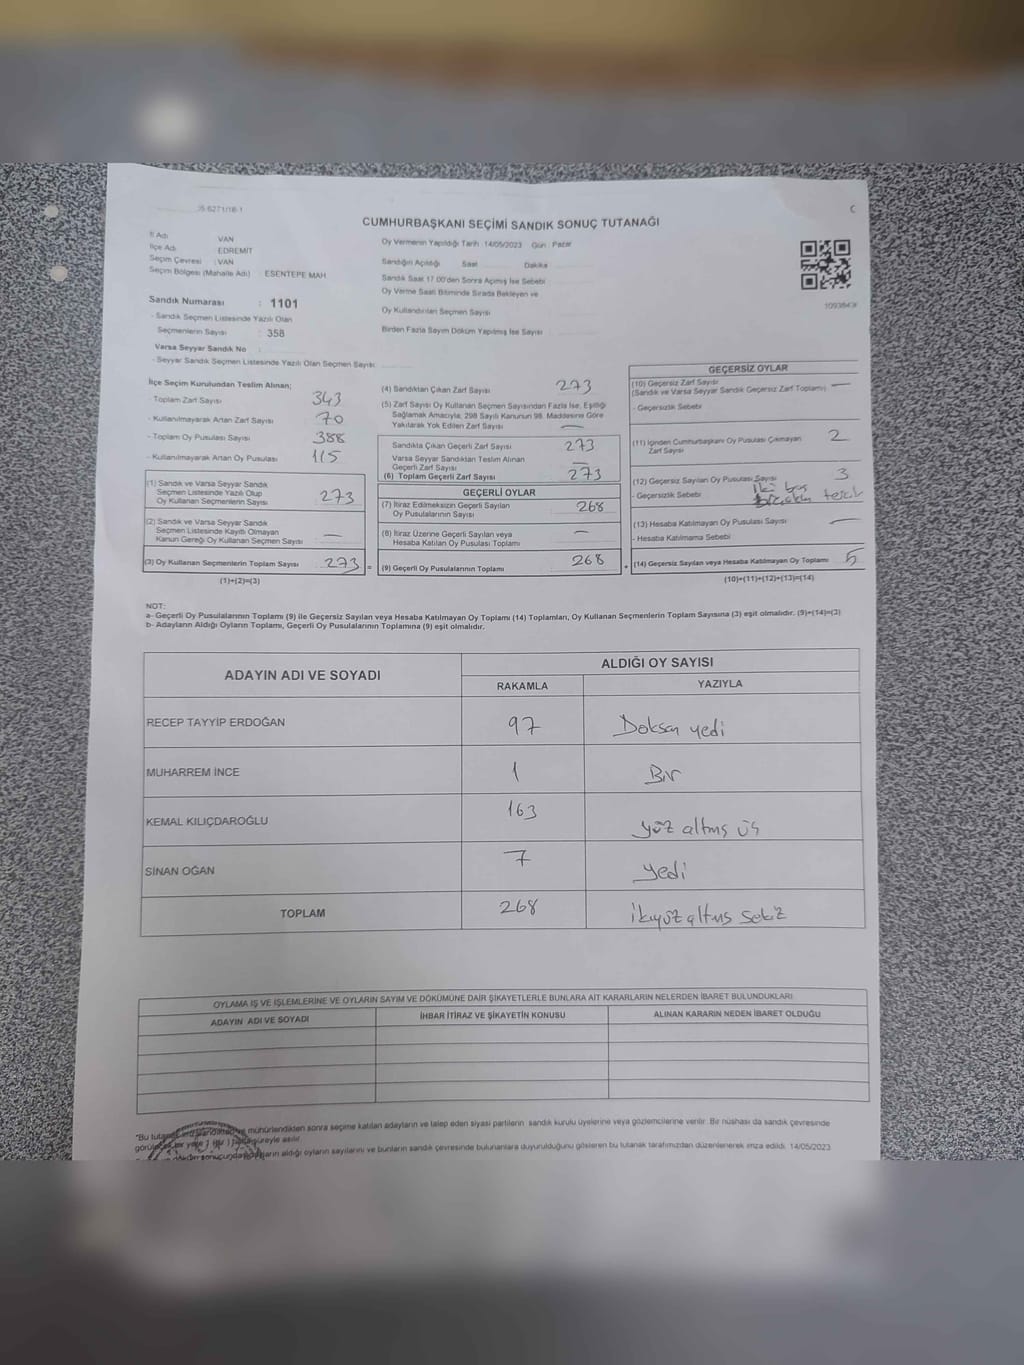 CUMHURBAŞKANI SEÇİMİ SANDIK SONUÇ TUTANAĞI
C
İl Adı VAN
İlçe Adı EDREMİT
Seçim Çevresi : VAN
Seçim Bölgesi (Mahalle Adı) : ESENTEPE MAH
Sandık Numarası : 1101
- Sandık Seçmen Listesinde Yazılı Olan
Seçmenlerin Sayısı : 358
Varsa Seyyar Sandık No :
- Seyyar Sandık Seçmen Listesinde Yazılı Olan Seçmen Sayısı:
Oy Vermenin Yapıldığı Tarih 14/05/2023 Gün : Pazar
Sandığın Açıldığı Saat Dakika
Sandık Saat 17.00'den Sonra Açılmış İse Sebebi
Oy Verme Saati Bitiminde Sırada Bekleyen ve
Oy Kullandırılan Seçmen Sayısı
Birden Fazla Sayım Döküm Yapılmış İse Sayısı
İlçe Seçim Kurulundan Teslim Alınan;
- Toplam Zarf Sayısı 343
- Kullanılmayarak Artan Zarf Sayısı 70
- Toplam Oy Pusulası Sayısı 388
- Kullanılmayarak Artan Oy Pusulası 115
(1) Sandık ve Varsa Seyyar Sandık
Seçmen Listesinde Yazılı Olup
Oy Kullanan Seçmenlerin Sayısı 273
(2) Sandık ve Varsa Seyyar Sandık
Seçmen Listesinde Kayıtlı Olmayan
Kanun Gereği Oy Kullanan Seçmen Sayısı —
(3) Oy Kullanan Seçmenlerin Toplam Sayısı 273 =
(1)+(2)=(3)
(4) Sandıktan Çıkan Zarf Sayısı 273
(5) Zarf Sayısı Oy Kullanan Seçmen Sayısından Fazla İse, Eşitliği
Sağlamak Amacıyla, 298 Sayılı Kanunun 98. Maddesine Göre
Yakılarak Yok Edilen Zarf Sayısı —
Sandıkta Çıkan Geçerli Zarf Sayısı 273
Varsa Seyyar Sandıktan Teslim Alınan
Geçerli Zarf Sayısı —
(6) Toplam Geçerli Zarf Sayısı 273
GEÇERLİ OYLAR
(7) İtiraz Edilmeksizin Geçerli Sayılan
Oy Pusulalarının Sayısı 268
(8) İtiraz Üzerine Geçerli Sayılan veya
Hesaba Katılan Oy Pusulası Toplamı —
(9) Geçerli Oy Pusulalarının Toplamı 268 +
GEÇERSİZ OYLAR
(10) Geçersiz Zarf Sayısı —
(Sandık ve Varsa Seyyar Sandık Geçersiz Zarf Toplamı)
- Geçersizlik Sebebi
(11) İçinden Cumhurbaşkanı Oy Pusulası Çıkmayan 2
Zarf Sayısı
(12) Geçersiz Sayılan Oy Pusulası Sayısı 3
- Geçersizlik Sebebi
(13) Hesaba Katılmayan Oy Pusulası Sayısı —
- Hesaba Katılmama Sebebi
(14) Geçersiz Sayılan veya Hesaba Katılmayan Oy Toplamı 5
(10)+(11)+(12)+(13)=(14)
NOT:
a- Geçerli Oy Pusulalarının Toplamı (9) ile Geçersiz Sayılan veya Hesaba Katılmayan Oy Toplamı (14) Toplamları, Oy Kullanan Seçmenlerin Toplam Sayısına (3) eşit olmalıdır. (9)+(14)=(3)
b- Adayların Aldığı Oyların Toplamı, Geçerli Oy Pusulalarının Toplamına (9) eşit olmalıdır.
ADAYIN ADI VE SOYADI ALDIĞI OY SAYISI
RAKAMLA YAZIYLA
RECEP TAYYİP ERDOĞAN 97 Doksan yedi
MUHARREM İNCE 1 Bir
KEMAL KILIÇDAROĞLU 163 yüz altmış üç
SİNAN OĞAN 7 yedi
TOPLAM 268 ikiyüz altmış sekiz
OYLAMA İŞ VE İŞLEMLERİNE VE OYLARIN SAYIM VE DÖKÜMÜNE DAİR ŞİKAYETLERLE BUNLARA AİT KARARLARIN NELERDEN İBARET BULUNDUKLARI
ADAYIN ADI VE SOYADI İHBAR İTİRAZ VE ŞİKAYETİN KONUSU ALINAN KARARIN NEDEN İBARET OLDUĞU
mühürlendikten sonra seçime katılan adayların ve talep eden siyasi partilerin sandık kurulu üyelerine veya gözlemcilerine verilir. Bir nüshası da sandık çevresinde
süreyle asılır.
aldığı oyların sayılarını ve bunların sandık çevresinde bulunanlara duyurulduğunu gösteren bu tutanak tarafımızdan düzenlenerek imza edildi. 14/05/2023